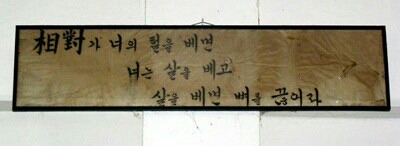 相對가 너의 털을 베면
너는 살을 베고
살을 베면 뼈를 끊어라